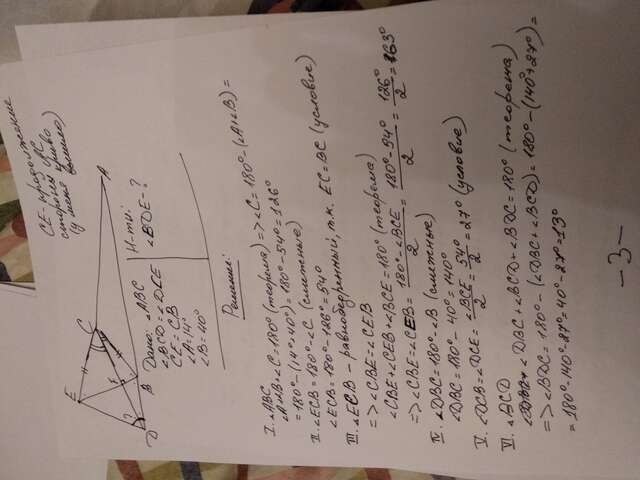 CE - продолжение
стороны AC
(у меня криво
вышло)
E
C
A
D
?
B
Дано: ∠ABC
∠BCD = ∠DCE
CE = CB
∠A = 14°
∠B = 40°
Н-ти:
∠BDE - ?
Решение:
I. ∠ABC
∠A+∠B+∠C = 180° (теорема) => ∠C = 180° - (∠A+∠B) =
= 180° - (14° + 40°) = 180° - 54° = 126°
II. ∠ECB = 180° - ∠C (смежные)
∠ECB = 180° - 126° = 54°
III. ∠ECB - равнобедренный, т.к. EC = BC (условие)
=> ∠CBE = ∠CEB
∠CBE + ∠CEB + ∠BCE = 180° (теорема)
=> ∠CBE = ∠CEB = (180° - ∠BCE)/2 = (180° - 54°)/2 = 126°/2 = 63°
IV. ∠DBC = 180° - ∠B (смежные)
∠DBC = 180° - 40° = 140°
V. ∠DCB = ∠DCE = ∠BCE/2 = 54°/2 = 27° (условие)
VI. ∠BCD
∠DBC + ∠BCD + ∠BDC = 180° (теорема)
=> ∠BDC = 180° - (∠DBC + ∠BCD) = 180° - (140° + 27°) =
= 180° - 140° - 27° = 40° - 27° = 13°
- 3 -